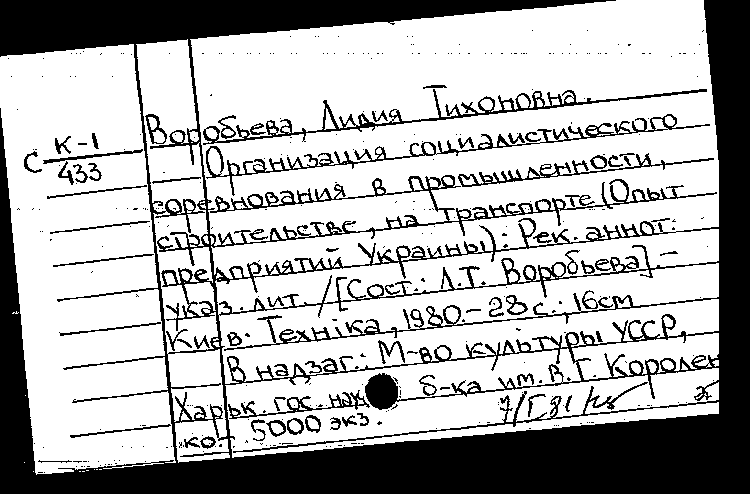 Воробьева, Лидия Тихоновна.
С К-1
433
Организация социалистического
соревнования в промышленности,
строительстве, на транспорте (Опыт
предприятий Украины): Рек. аннот.
указ. лит. /[Сост.: Л.Т. Воробьева].-
Киев: Техніка, 1980.- 28 с.; 16см
В надзаг.: М-во культуры УССР,
Харьк. гос. науч. б-ка им. В.Г. Королен
ко. 5000 экз.